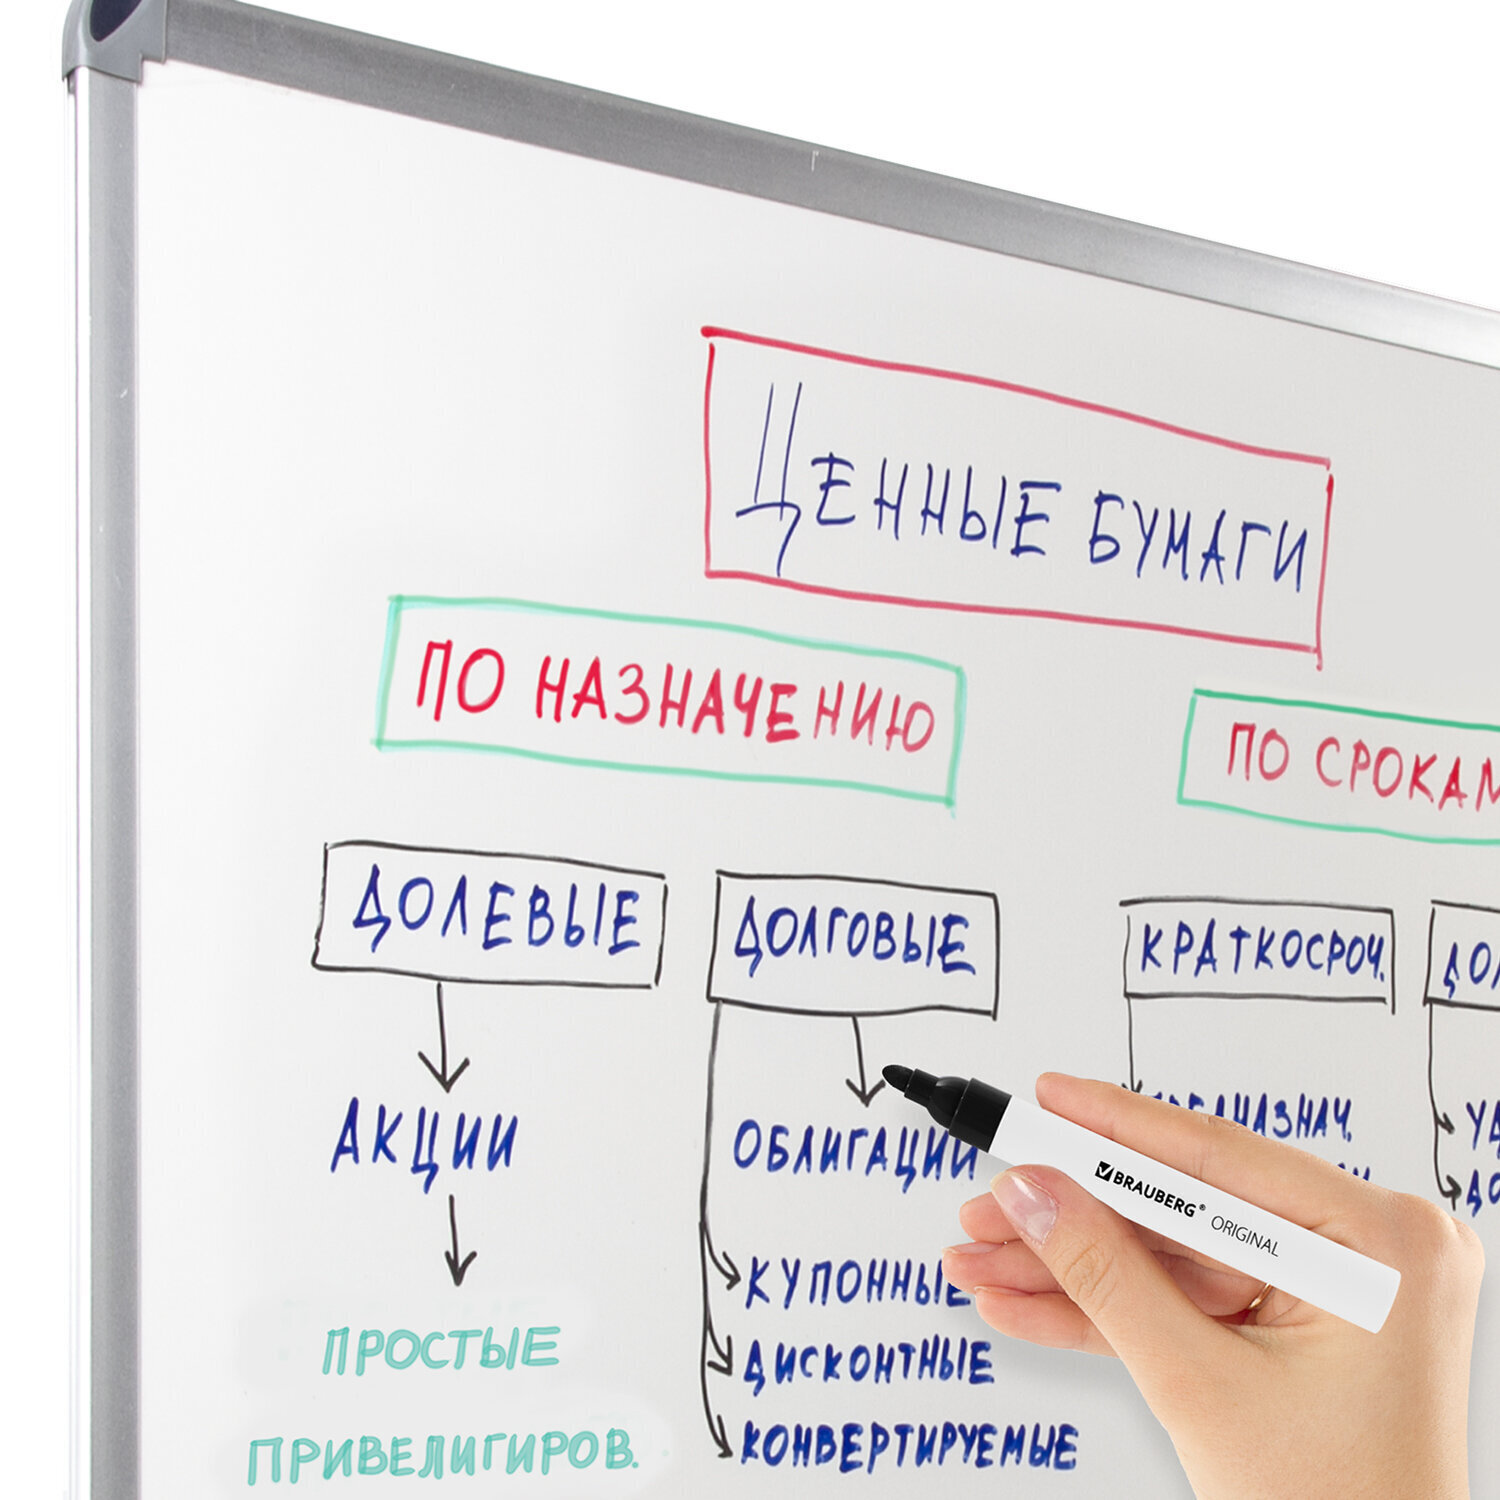 ЦЕННЫЕ БУМАГИ
ПО НАЗНАЧЕНИЮ
ПО СРОКАМ
ДОЛЕВЫЕ
ДОЛГОВЫЕ
КРАТКОСРОЧ.
АКЦИИ
ОБЛИГАЦИИ
ПРОСТЫЕ
ПРИВЕЛИГИРОВ.
КУПОННЫЕ
ДИСКОНТНЫЕ
КОНВЕРТИРУЕМЫЕ
BRAUBERG® ORIGINAL